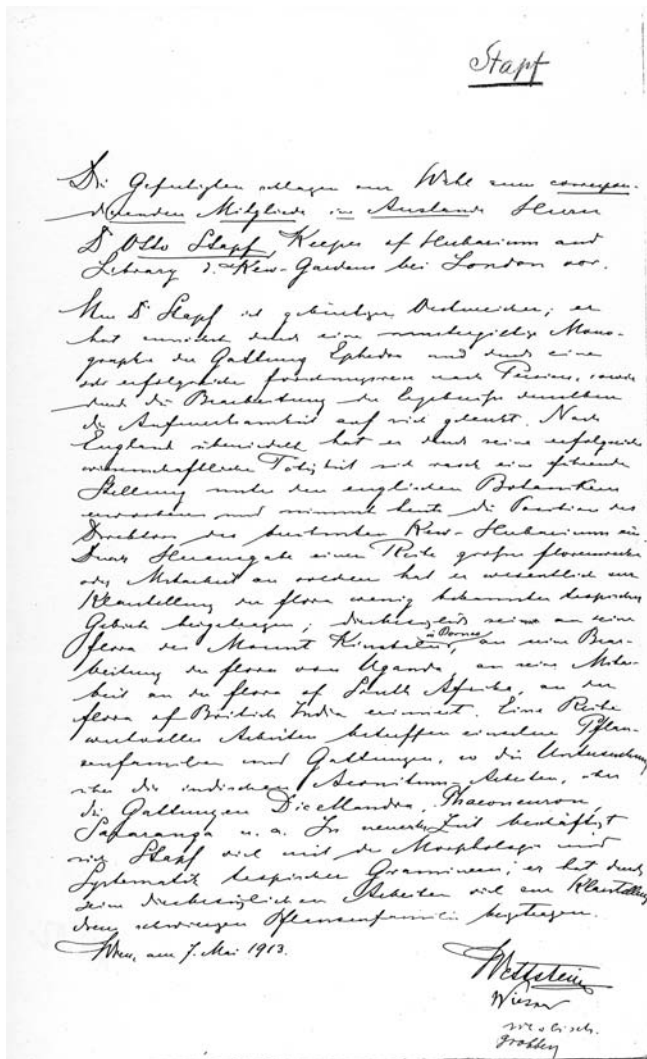 Stapf
Die Gefertigten schlagen zur Wahl zum correspon-
dierenden Mitgliede im Auslande Herrn
Dr Otto Stapf, Keeper of Herbarium and
Library d. Kew-Gardens bei London vor.
Herr Dr Stapf ist gebürtiger Oesterreicher; er
hat zunächst durch eine mustergiltige Mono-
graphie der Gattung Ephedra und durch eine
sehr erfolgreiche Forschungsreise nach Persien, sowie
durch die Bearbeitung der Ergebnisse derselben
die Aufmerksamkeit auf sich gelenkt. Nach
England übersiedelt hat er durch seine erfolgreiche
wissenschaftliche Tätigkeit sich rasch eine führende
Stellung unter den englischen Botanikern
erworben und nimmt heute die Position des
Direktors des berühmten Kew-Herbariums ein.
Durch Herausgabe einer Reihe großer Florenwerke
oder Mitarbeit an solchen hat er wesentlich zur
Klarstellung der Flora wenig bekannter tropischer
Gebiete beigetragen; diesbezüglich sei an seine
Flora des Mount Kinabalu in Borneo, an seine Bear-
beitung der Flora von Uganda, an seine Mitar-
beit an der Flora of South Afrika, an der
Flora of British India erinnert. Eine Reihe
wertvoller Arbeiten betreffen einzelne Pflan-
zenfamilien und Gattungen, so die Untersuchung
über die indischen Aconitum-Arbeiten, über
die Gattungen Dicellandra, Phaeoneuron,
Sararanga u. a. In neuester Zeit beschäftigt
sich Stapf viel mit der Morphologie und
Systematik tropischer Gramineen; er hat durch
seine diesbezüglichen Arbeiten viel zur Klarstellung
dieser schwierigen Pflanzenfamilie beigetragen.
Wien, am 7. Mai 1913.
Wettstein
Wiesner
Molisch.
Grobben